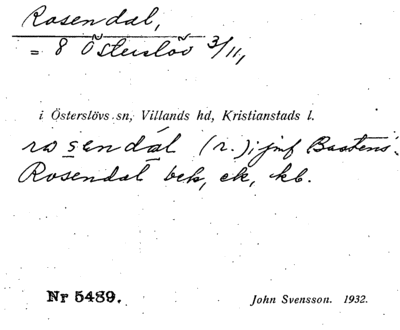 Rosendal,
= 8 Österslöv 3/11,
i Österslövs sn, Villands hd, Kristianstads l.
rosendál (r.); jmf Bastens
Rosendal bek, ek, kb.
Nr 5489. John Svensson. 1932.